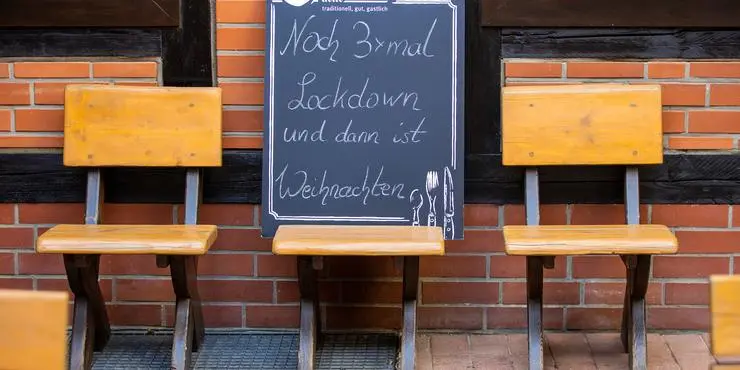 traditionell, gut, gastlich
Noch 3xmal
Lockdown
und dann ist
Weihnachten